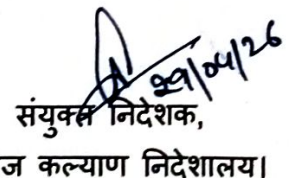 29/04/26
संयुक्त निदेशक,
ज कल्याण निदेशालय।